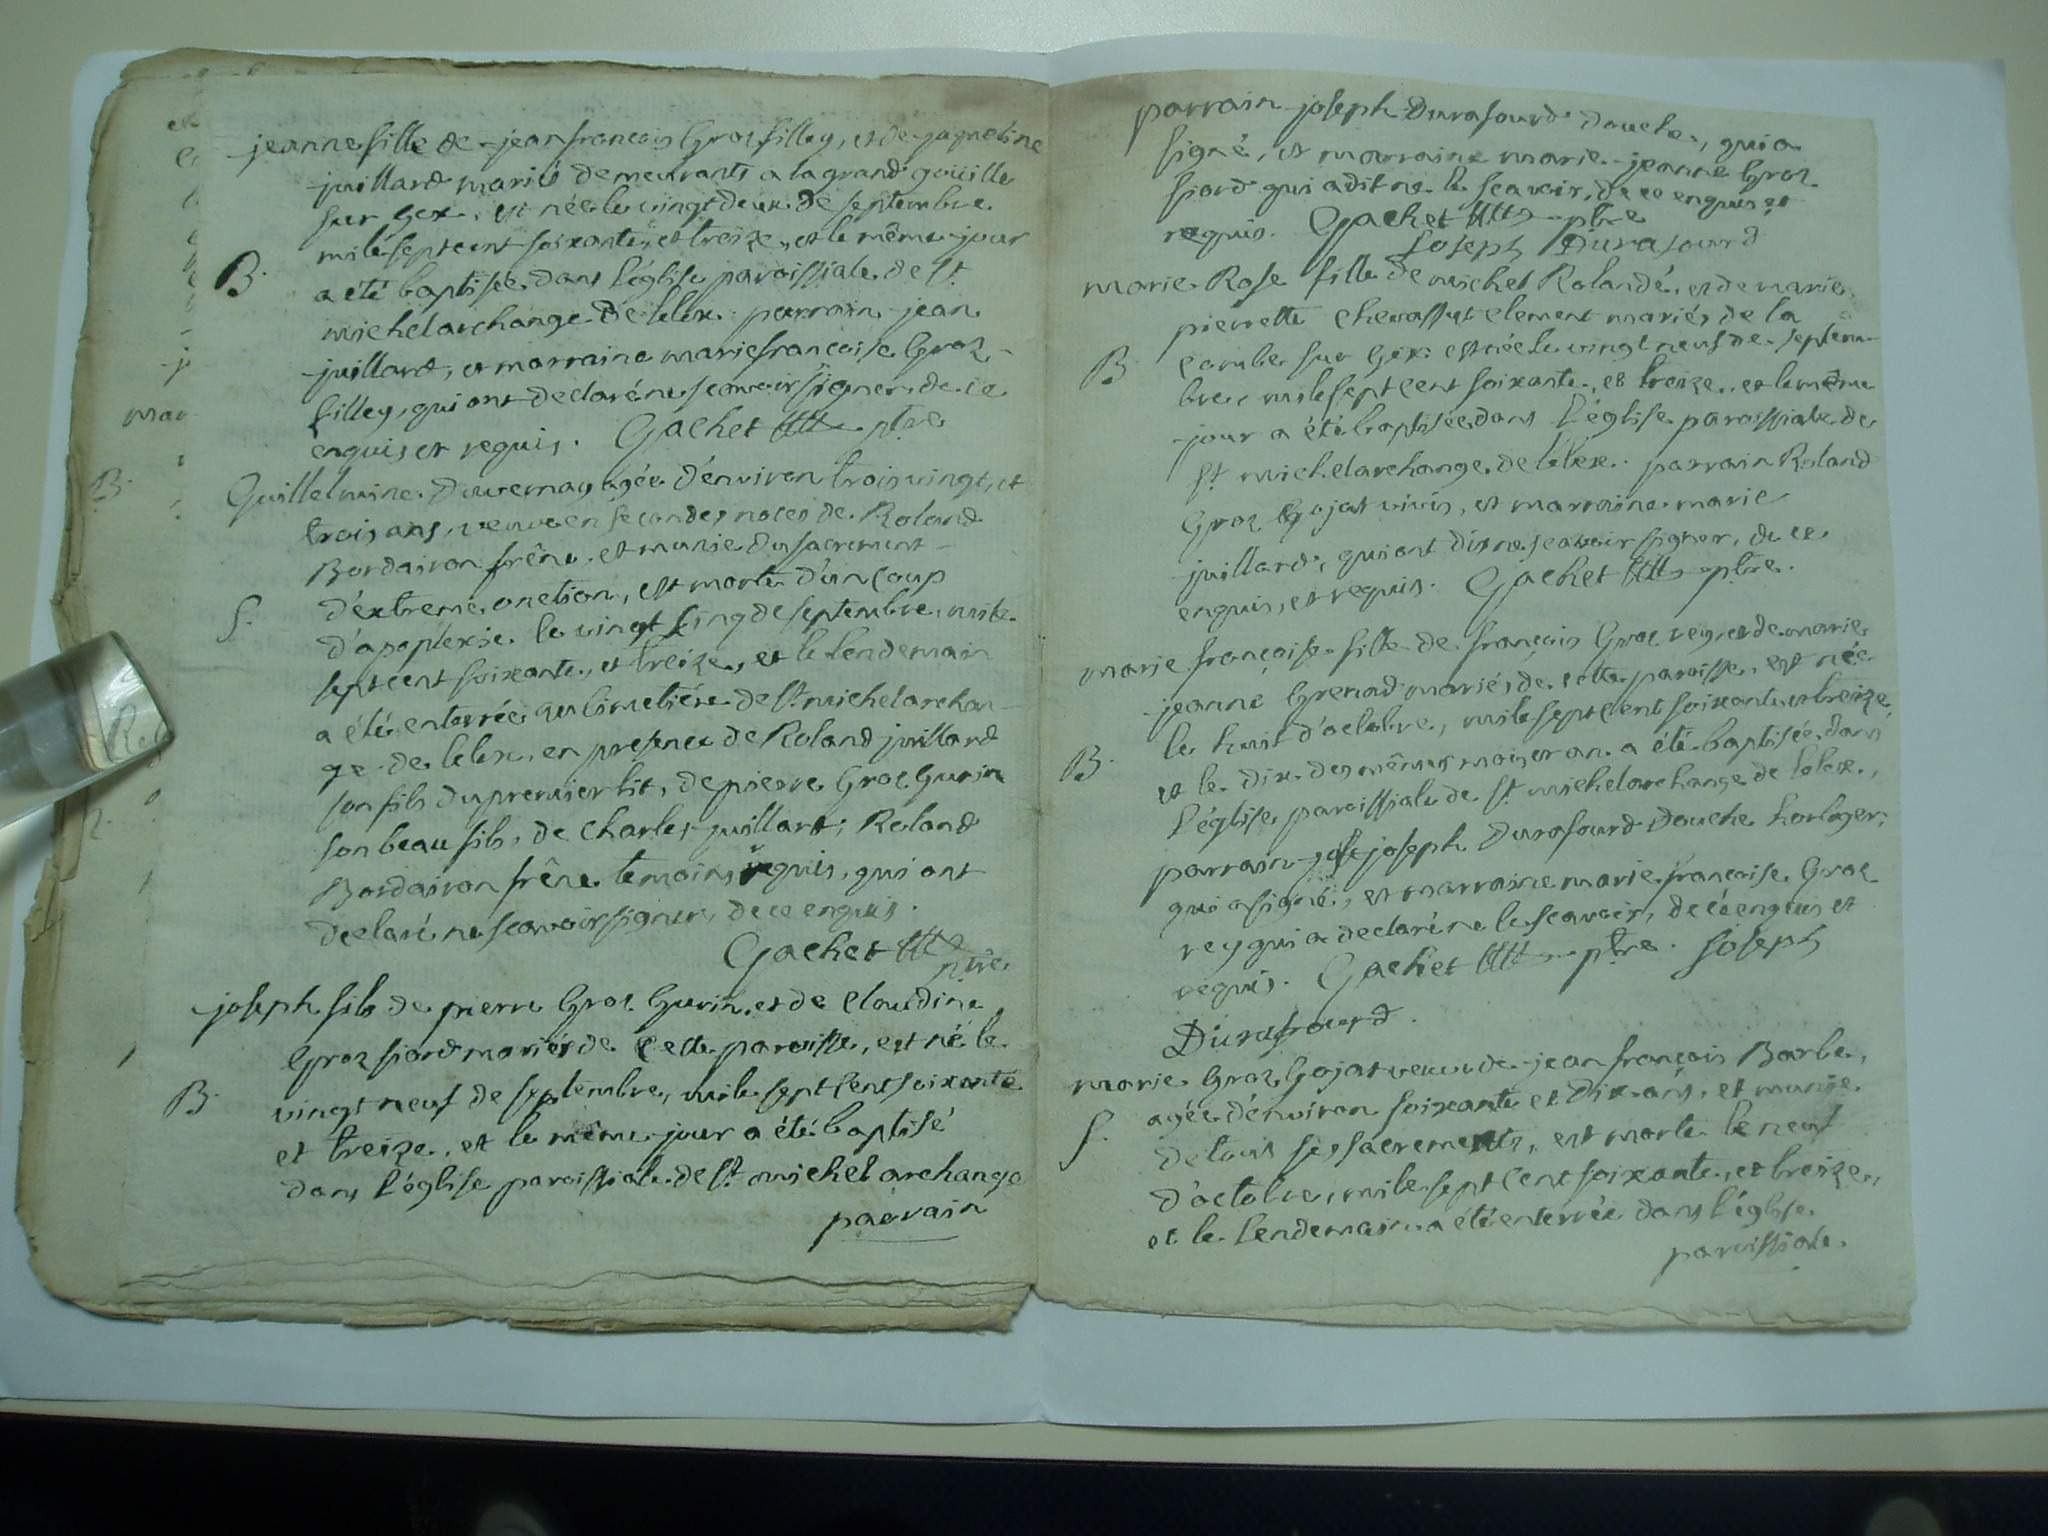 jeanne fille de jean françois Groz filley, et de jaqueline
juillard mariés demeurants a la grand goüille
sur Gex, est née le vingt deux de septembre
mile sept cent soixante, et treize, et le même jour
B. a été baptisée dans l'église paroissiale de St.
michel archange de lelex. parrain jean
juillard, et marraine marie françoise Groz
filley, qui ont declaré ne scavoir signer de ce
enquis et requis. Gachet ptre
Guillelmine Duvernay agée d'environ trois vingt, et
trois ans, veuve en secondes noces de Roland
Bordairon frêne, et munie du sacrement
S. d'extreme onction, est morte d'un coup
d'apoplexie le vingt cinq de septembre, mile
sept cent soixante, et treize, et le lendemain
a été enterrée au cimetiére de St. michel archan-
ge de lelex, en presence de Roland juillard
son fils du premier lit, de pierre Groz Gurin
son beau fils, de Charles juillard, Roland
Bordairon frêne temoins requis, qui ont
declaré ne scavoir signer, de ce enquis.
Gachet ptre
joseph fils de pierre Groz Gurin, et de Claudine
Groz fiard mariés de cette paroisse, est né le
B. vingt neuf de septembre, mile sept cent soixante
et treize, et le même jour a été baptisé
dans l'église paroissiale de St. michel archange
parrain
parrain joseph Durafourd douche, qui a
signé, et marraine marie jeanne Groz
fiard qui a dit ne le scavoir, de ce enquis et
requis. Gachet ptre
Joseph Durafourd
marie Rose fille de michel Rolandé, et de marie
pierrette Chevassut clement mariés de la
B. combe sur Gex: est née le vingt neuf de septem-
bre, mile sept cent soixante, et treize, et le même
jour a été baptisée dans l'église paroissiale de
St. michel archange de lelex. parrain Roland
Groz Gojat vivis, et marraine marie
juillard, qui ont dit ne scavoir signer, de ce
enquis, et requis. Gachet ptre.
marie françoise fille de françois Groz rey, et de marie
jeanne Grenad mariés de cette paroisse, est née
le huit d'octobre, mile sept cent soixante et treize,
B. et le dix des mêmes mois et an a été baptisée dans
l'église paroissiale de St. michel archange de lelex,
parrain joseph Durafourd Douche horloger,
qui a signé, et marraine marie françoise Groz
rey qui a declaré ne le scavoir, de ce enquis et
requis. Gachet ptre. Joseph
Durafourd.
marie Groz Gojat veuve de jean françois Barbe,
agée d'environ soixante et dix ans, et munie
S. de touts ses sacrements, est morte le neuf
d'octobre, mile sept cent soixante, et treize,
et le lendemain a été enterrée dans l'église
paroissiale.